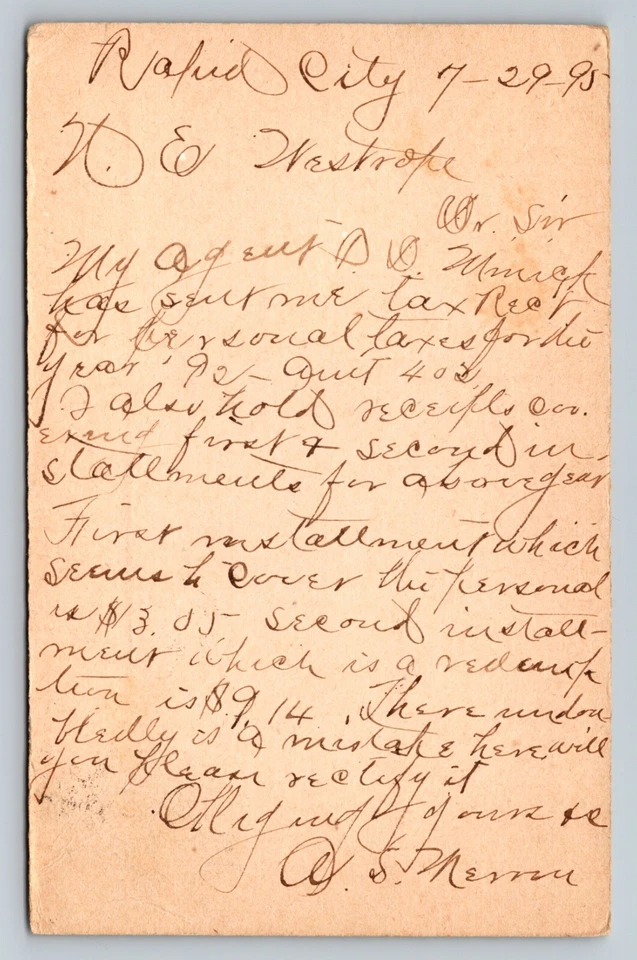 Rapid City 7-29-95
N. E Westrope
Dr. Sir
My Agent D. D. Minick
has sent me tax Rect
for personal taxes for the
year '92 - Amt 403
I also hold receipts cov.
ering first & second in-
stallments for above year
First installment which
seems to cover the personal
is $3.05 second install-
ment which is a redemp
tion is $9.14. There undou
btedly is a mistake here will
you please rectify it
Obliging yours &c
A. S.